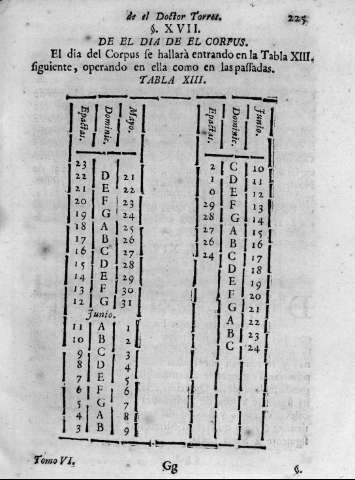 de el Doctor Torres. 225
§. XVII.
DE EL DIA DE EL CORPUS.
El dia del Corpus se hallarà entrando en la Tabla XIII.
siguiente, operando en ella como en las passadas.
TABLA XIII.
Epactas. Dominic. Mayo.
23
22 D 21
21 E 22
20 F 23
19 G 24
18 A 25
17 B 26
16 C 27
15 D 28
14 E 29
13 F 30
12 G 31
Junio.
11 A 1
10 B 2
9 C 3
8 D 4
7 E 5
6 F 6
5 G 7
4 A 8
3 B 9
Epactas. Dominic. Junio.
2 C 10
1 D 11
0 E 12
29 F 13
28 G 14
27 A 15
26 B 16
24 C 17
D 18
E 19
F 20
G 21
A 22
B 23
C 24
Tomo VI. Gg §.